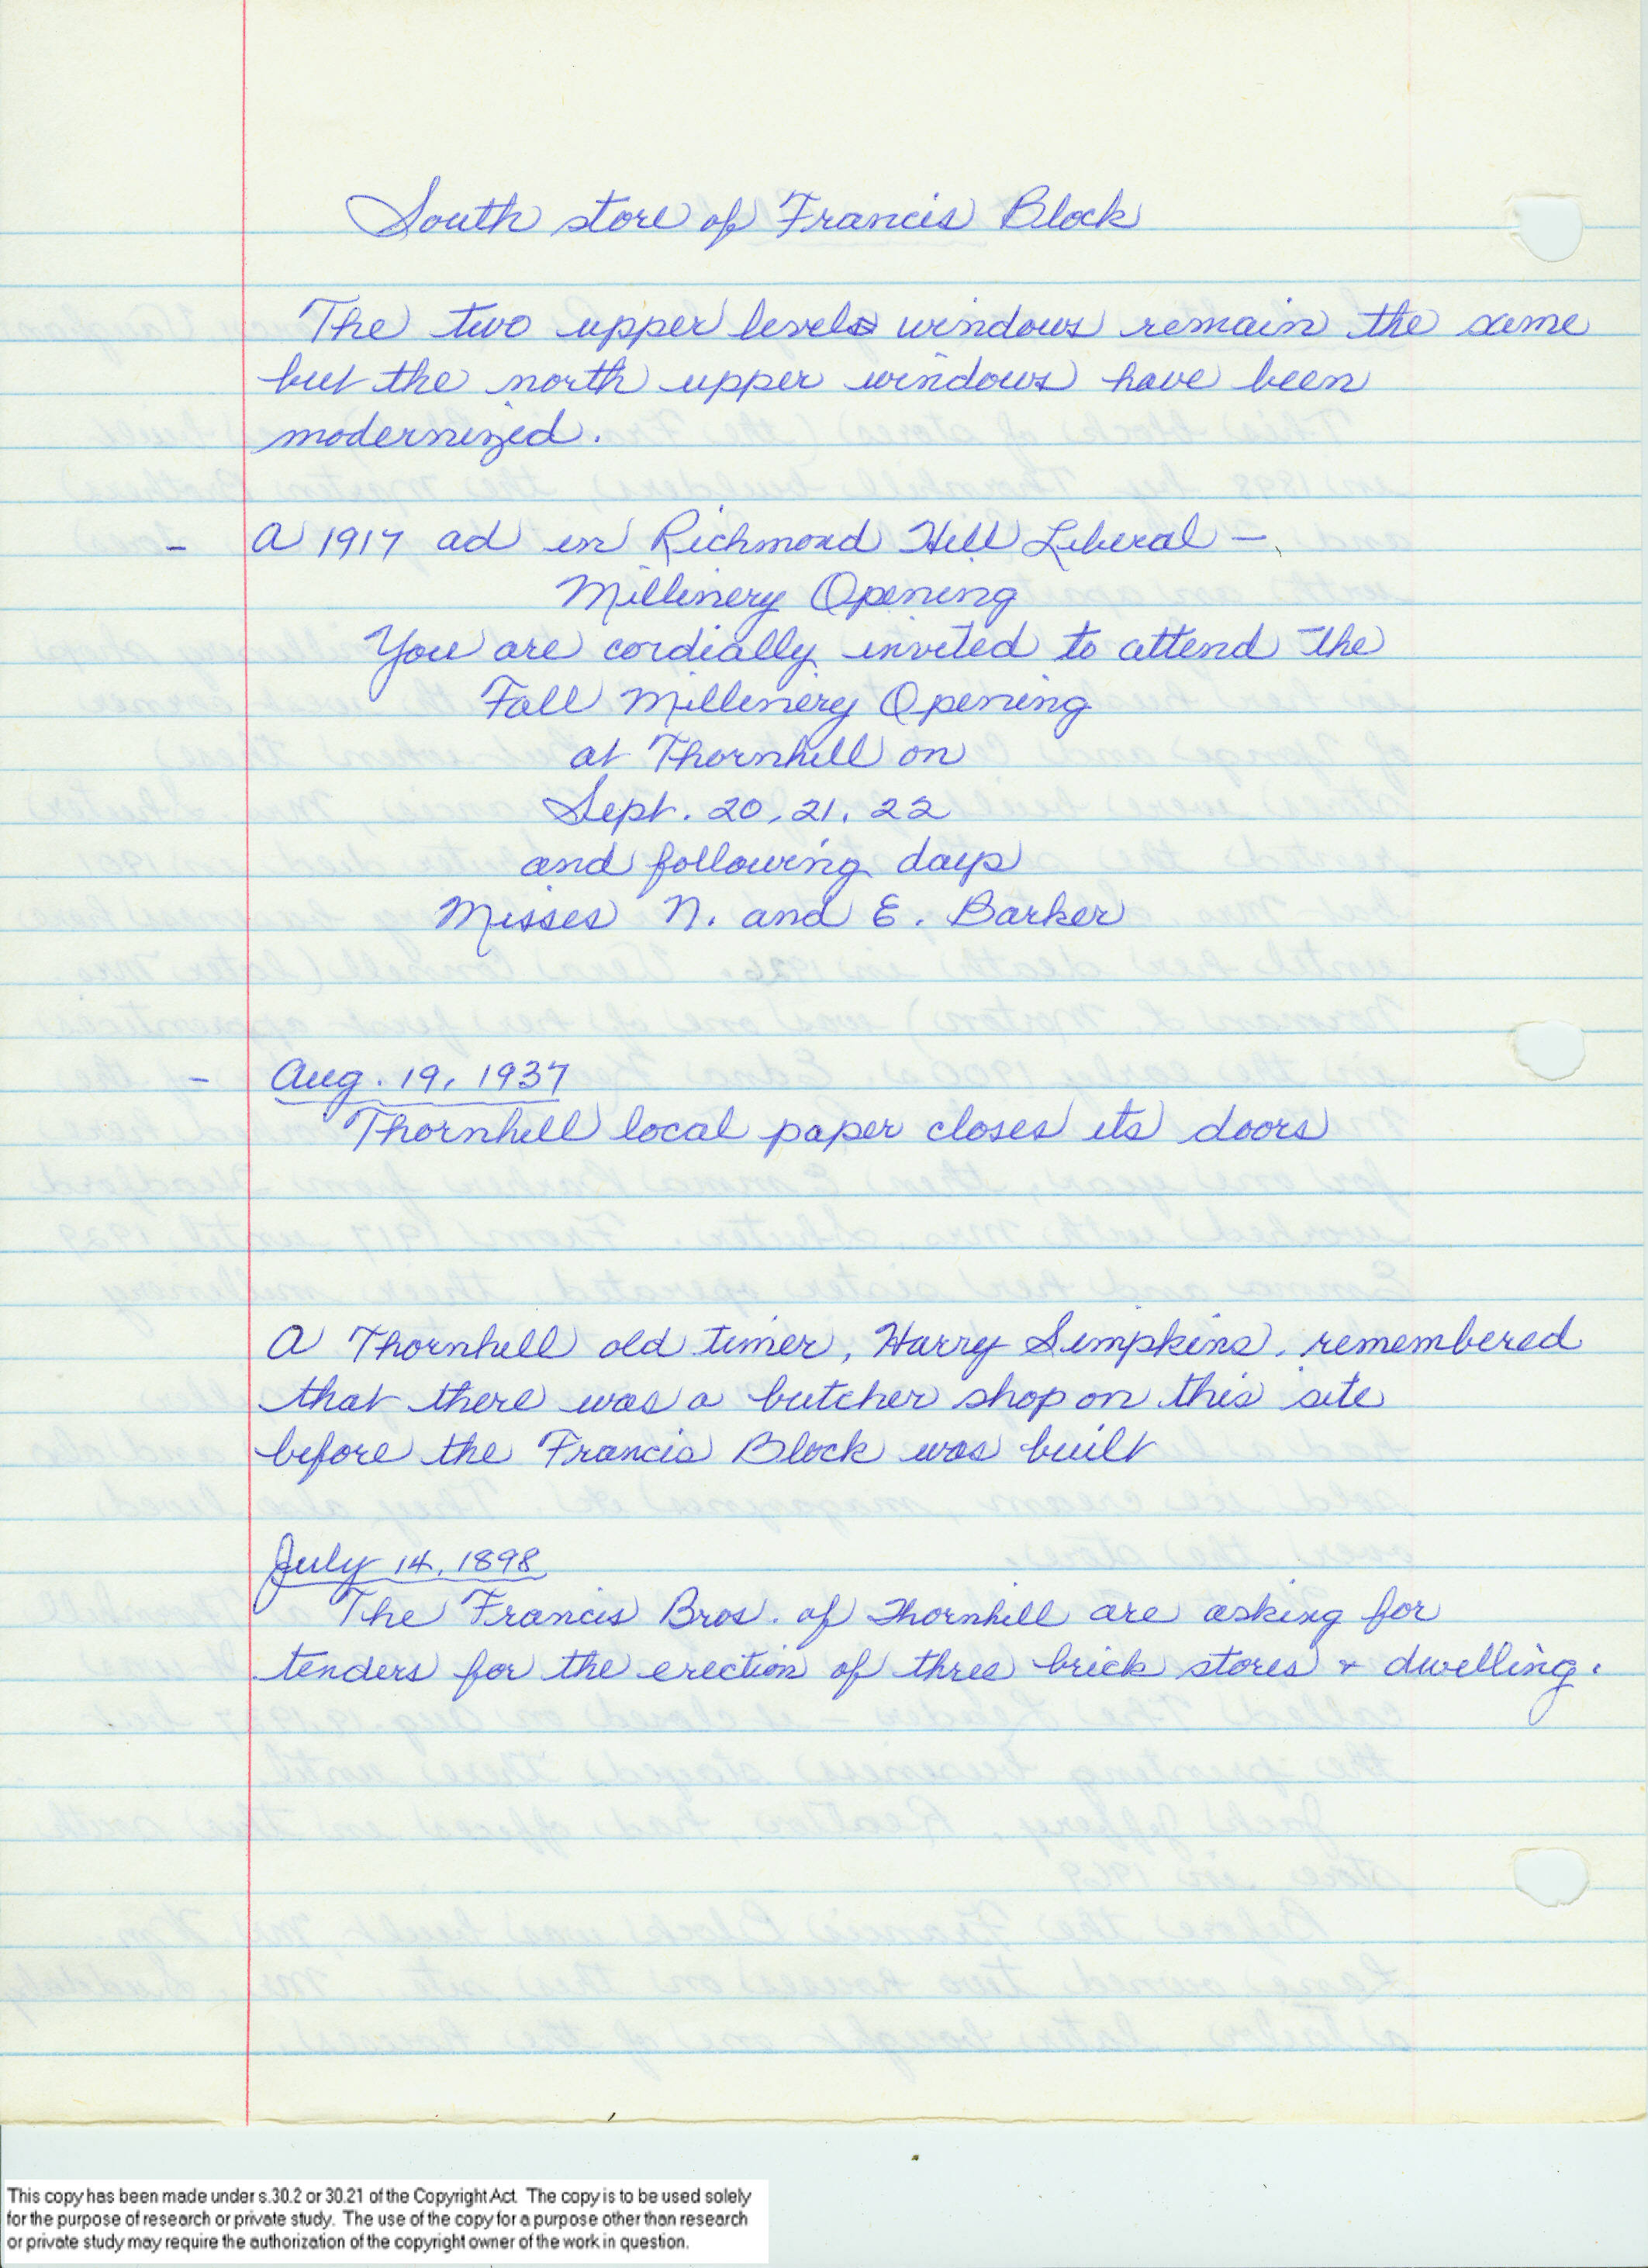 South store of Francis Block
The two upper levels windows remain the same
but the north upper windows have been
modernized.
- A 1917 ad in Richmond Hill Liberal -
Millinery Opening
You are cordially invited to attend the
Fall Millinery Opening
at Thornhill on
Sept. 20, 21, 22
and following days
Misses N. and E. Barker
- Aug. 19, 1937
Thornhill local paper closes its doors
A Thornhill old timer, Harry Simpkins, remembered
that there was a butcher shop on this site
before the Francis Block was built
July 14, 1898
The Francis Bros. of Thornhill are asking for
tenders for the erection of three brick stores & dwelling.
This copy has been made under s.30.2 or 30.21 of the Copyright Act. The copy is to be used solely
for the purpose of research or private study. The use of the copy for a purpose other than research
or private study may require the authorization of the copyright owner of the work in question.